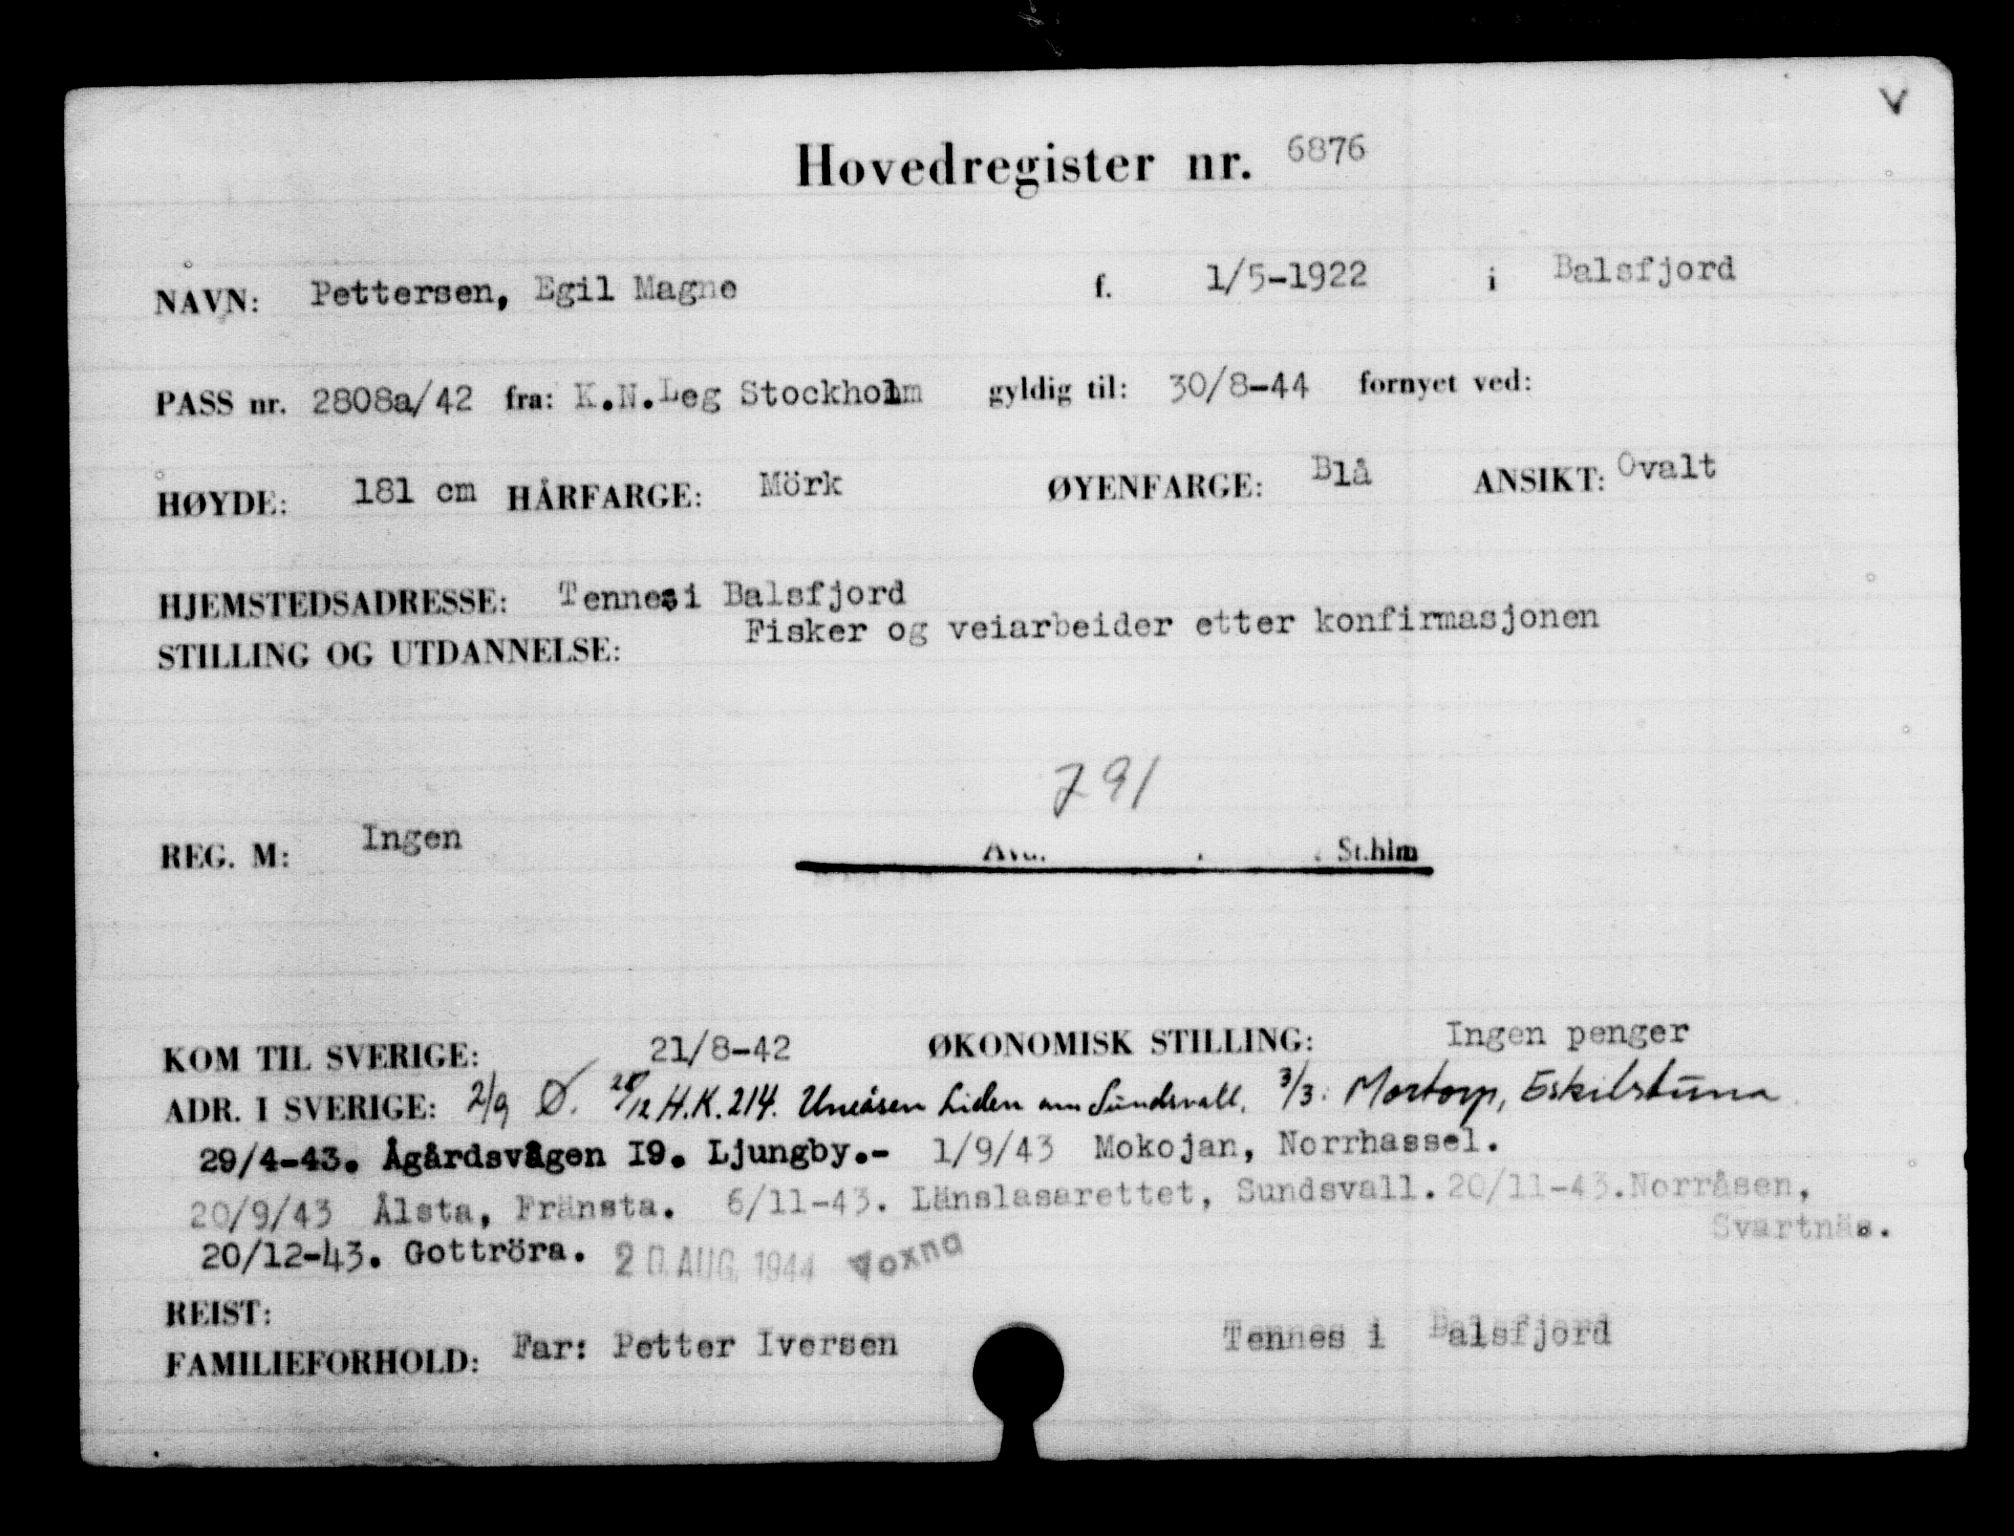 V
Hovedregister nr. 6876
NAVN: Pettersen, Egil Magne f. 1/5-1922 i Balsfjord
PASS nr. 2808a/42 fra: K.N.Leg Stockholm gyldig til: 30/8-44 fornyet ved:
HØYDE: 181 cm HÅRFARGE: Mörk ØYENFARGE: Blå ANSIKT: Ovalt
HJEMSTEDSADRESSE: Tennes i Balsfjord
STILLING OG UTDANNELSE: Fisker og veiarbeider etter konfirmasjonen
791
REG. M: Ingen St.hlm
KOM TIL SVERIGE: 21/8-42 ØKONOMISK STILLING: Ingen penger
ADR. I SVERIGE: 2/9 Ø. /12 H.K. 214. Uneåsen Liden om Sundsvall, 3/3: Mortorp, Eskilstuna
29/4-43. Ågårdsvägen I9. Ljungby.- 1/9/43 Mokojan, Norrhassel.
20/9/43 Ålsta, Fränsta. 6/11-43. Länslasarettet, Sundsvall. 20/11-43. Norråsen,
Svartnäs.
20/12-43. Gottröra. 20. AUG. 1944 Voxna
REIST:
FAMILIEFORHOLD: Far: Petter Iversen Tennes i Balsfjord